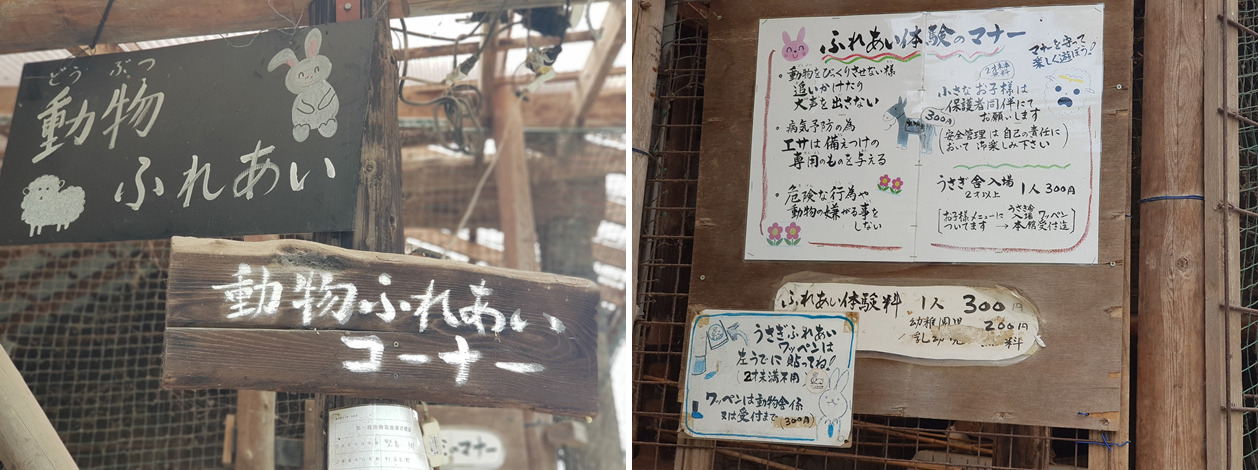 どうぶつ
動物
ふれあい
動物ふれあい
コーナー
のマナー
ふれあい体験のマナー
マナーを守って
楽しく遊ぼう!
・動物をびっくりさせない様
追いかけたり
大声を出さない
・病気予防の為
エサは備えつけの
専用のものを与える
・危険な行為や
動物の嫌がる事を
しない
小さなお子様は
保護者同伴にて
お願いします
300円
(安全管理は自己の責任に
おいて御楽しみ下さい)
うさぎ舎入場 1人300円
2才以上
[お子様メニューに
ついてます
→
うさぎ舎
入場ワッペン
本館受付迄]
ふれあい体験料 1人 300円
幼稚園児 200円
乳幼児 無料
うさぎふれあい
ワッペンは
左うでに貼ってね!
(2才未満不用)
ワッペンは動物舎係
又は受付まで
300円